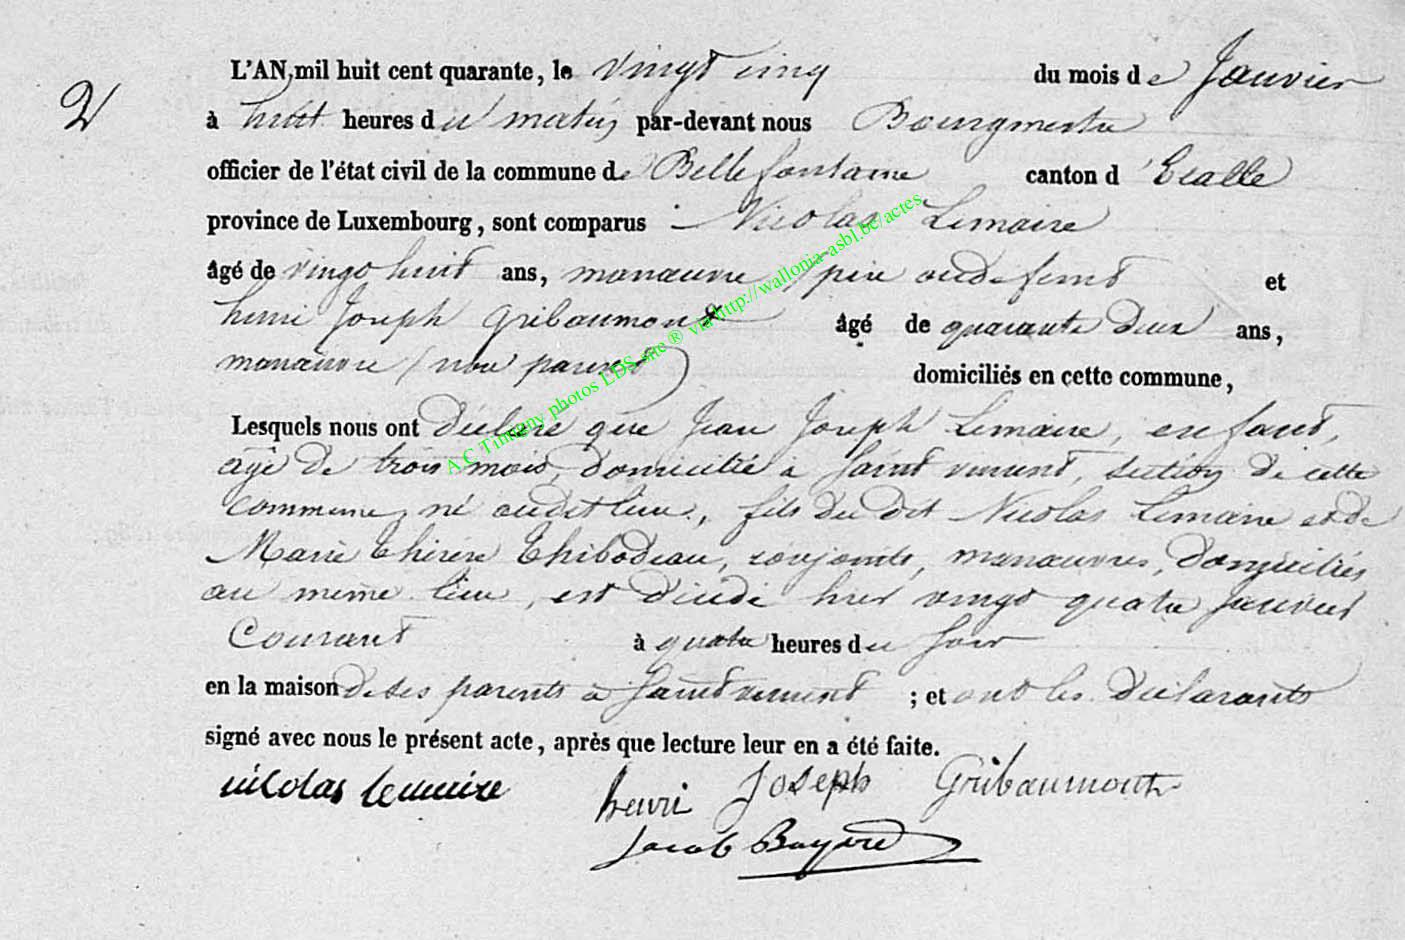 L'AN mil huit cent quarante, le vingt cinq du mois de Janvier
2
à huit heures du matin par-devant nous Bourgmestre
officier de l'état civil de la commune de Bellefontaine canton d'Etalle
province de Luxembourg, sont comparus Nicolas Lemaire
âgé de vingt huit ans, manœuvre (père au défunt et
henri Joseph Gribaumont âgé de quarante deux ans,
manœuvre (non parent) domiciliés en cette commune,
Lesquels nous ont déclaré que Jean Joseph Lemaire, enfant,
agé de trois mois, domicilié à Saint vincent, section de cette
commune, né audit lieu, fils du dit Nicolas Lemaire et de
Marie thérèse Thibodeau, conjoints, manœuvres, domiciliés
au même lieu, est décédé hier vingt quatre Janvier
Courant à quatre heures du soir
en la maison de ses parents à Saint vincent ; et ont les déclarants
signé avec nous le présent acte, après que lecture leur en a été faite.
nicolas lemaire henri Joseph Gribaumont
Jacob
A.C Tintigny photos LDS site ® via http://wallonia-asbl.be/actes